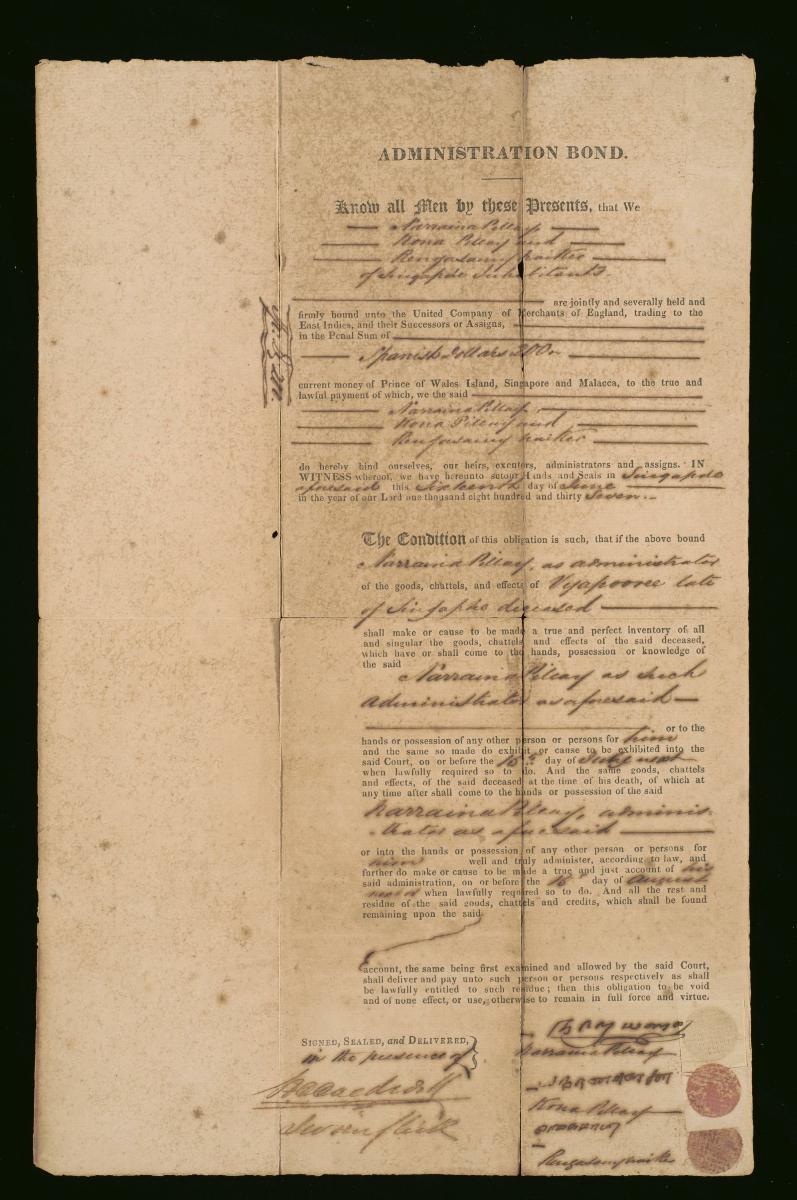 ADMINISTRATION BOND.
Know all Men by these Presents, that We
Narraina Pillay,
Kona Pillay and
Rengasamy Naiker
of Singapore Inhabitants.
are jointly and severally held and
firmly bound unto the United Company of Merchants of England, trading to the
East Indies, and their Successors or Assigns,
in the Penal Sum of
Spanish Dollars 200
current money of Prince of Wales Island, Singapore and Malacca, to the true and
lawful payment of which, we the said
Narraina Pillay,
Kona Pillay and
Rengasamy Naiker
do hereby bind ourselves, our heirs, executors, administrators and assigns. IN
WITNESS whereof, we have hereunto set our Hands and Seals in Singapore
aforesaid this Sixteenth day of June
in the year of our Lord one thousand eight hundred and thirty Seven.
The Condition of this obligation is such, that if the above bound
Narraina Pillay, as administrator
of the goods, chattels, and effects of Vyapooree late
of Singapore deceased
shall make or cause to be made a true and perfect inventory of all
and singular the goods, chattels and effects of the said deceased,
which have or shall come to the hands, possession or knowledge of
the said
Narraina Pillay as such
administrator as aforesaid
or to the
hands or possession of any other person or persons for him
and the same so made do exhibit or cause to be exhibited into the
said Court, on or before the 16th day of July next
when lawfully required so to do. And the same goods, chattels
and effects, of the said deceased at the time of his death, of which at
any time after shall come to the hands or possession of the said
Narraina Pillay, adminis-
-trator as aforesaid
or into the hands or possession of any other person or persons for
him well and truly administer, according to law, and
further do make or cause to be made a true and just account of his
said administration, on or before the 16 day of August
next when lawfully required so to do. And all the rest and
residue of the said goods, chattels and credits, which shall be found
remaining upon the said
account, the same being first examined and allowed by the said Court,
shall deliver and pay unto such person or persons respectively as shall
be lawfully entitled to such residue; then this obligation to be void
and of none effect, or use, otherwise to remain in full force and virtue.
SIGNED, SEALED, and DELIVERED,
in the presence of
Narraina Pillay
Sworn Clerk
Kona Pillay
Rengasamy Naiker